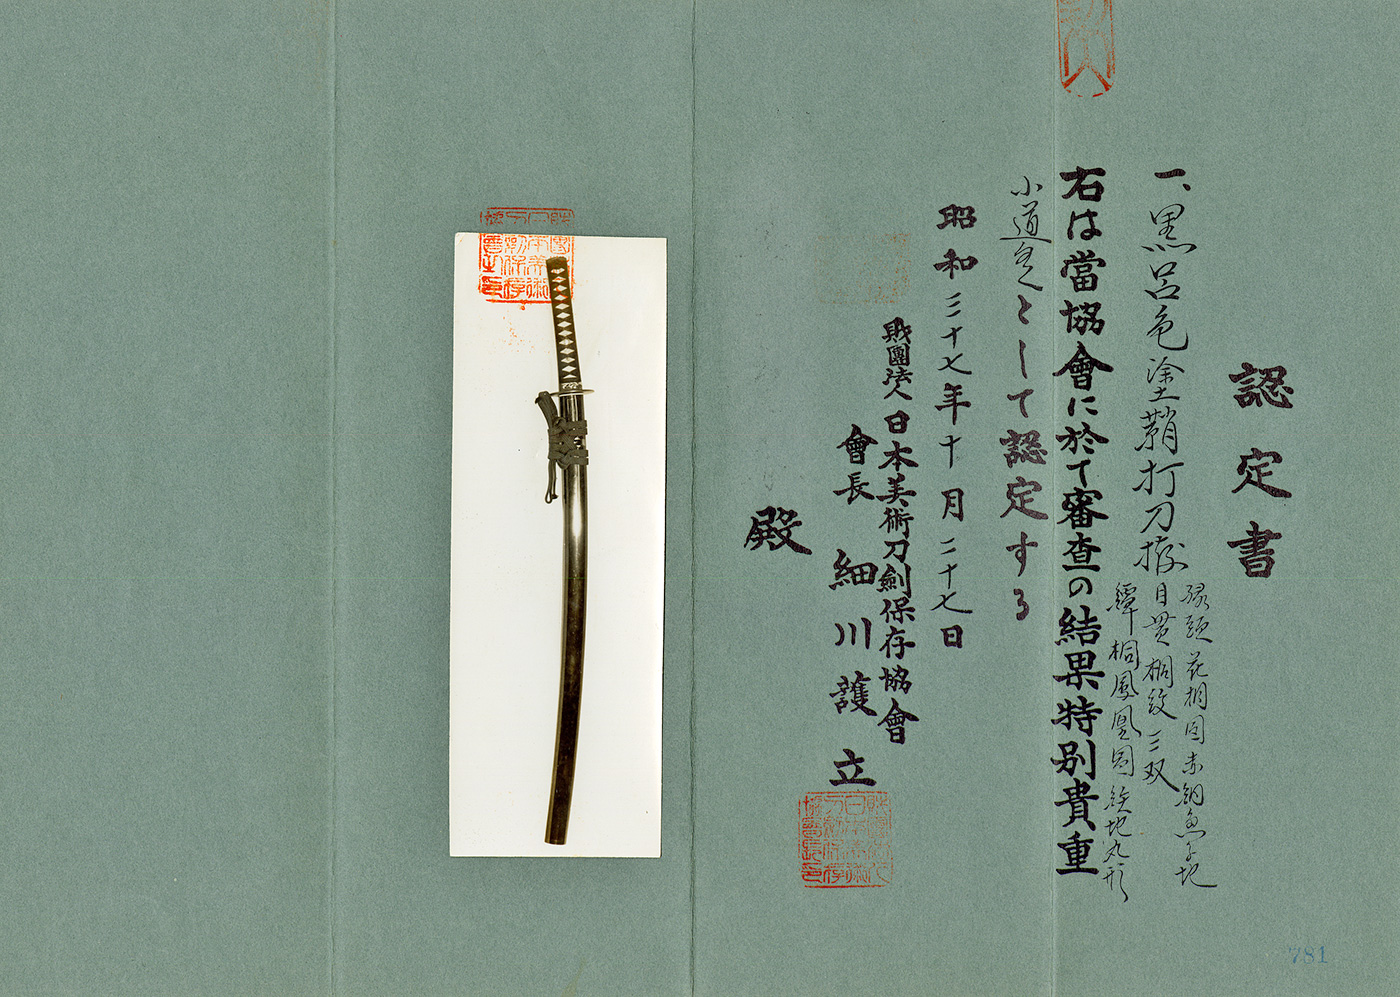 認定書
一、黒呂色塗鞘打刀拵
縁頭 花桐図赤銅魚子地
目貫 桐紋三双
鐔 桐鳳凰図鉄地丸形
右は當協會に於て審査の結果特別貴重
小道具として認定する
昭和三十七年十月二十七日
財團法人日本美術刀劍保存協會
會長 細川護立
殿
781